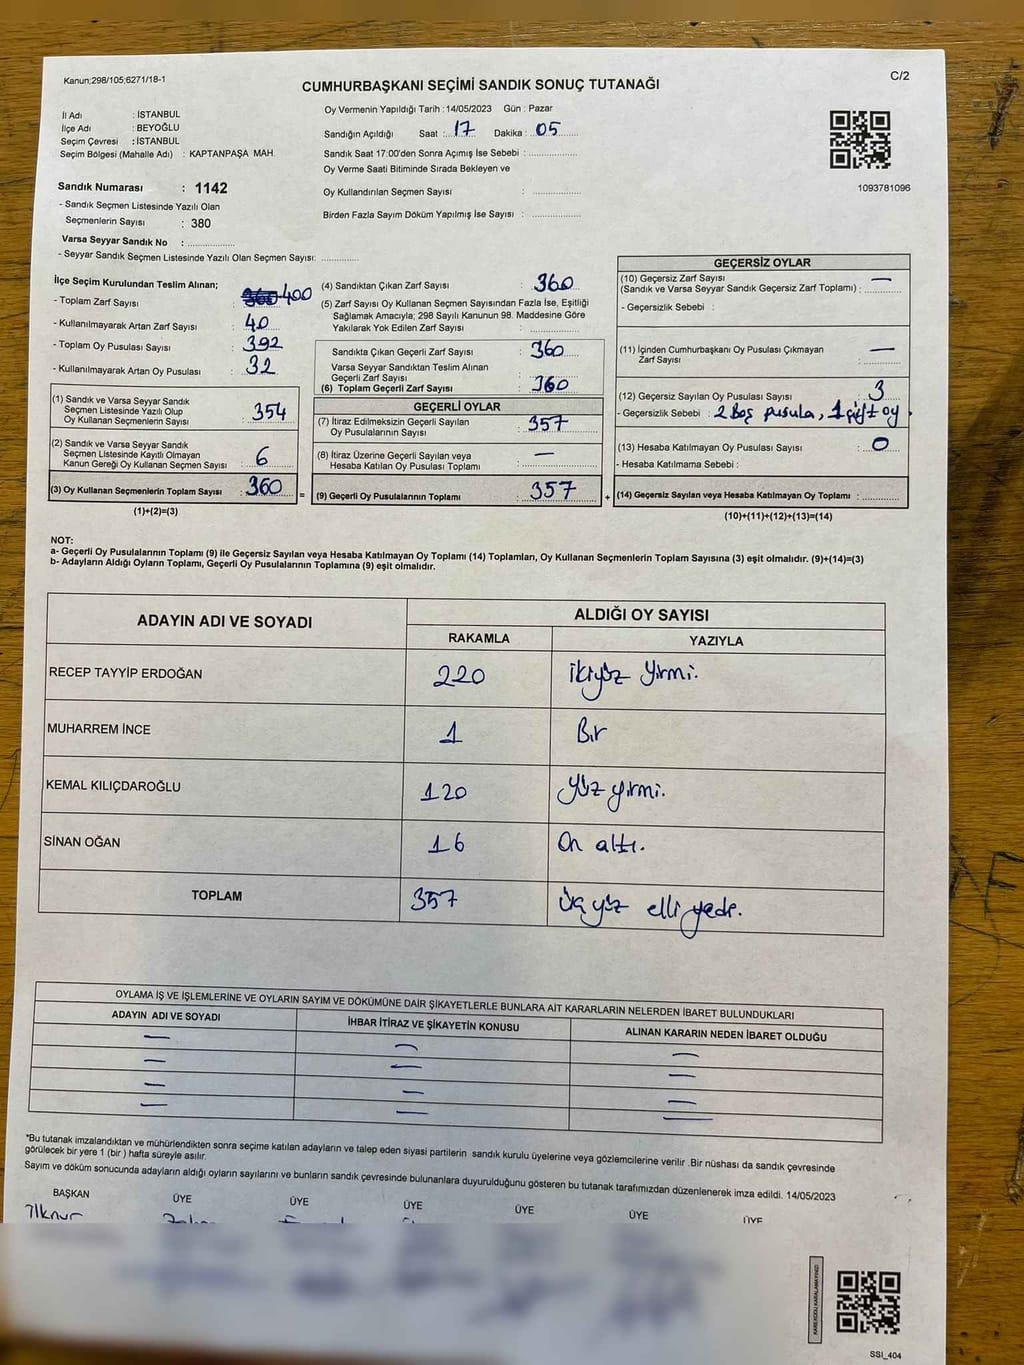 Kanun;298/105;6271/18-1
C/2
CUMHURBAŞKANI SEÇİMİ SANDIK SONUÇ TUTANAĞI
İl Adı : İSTANBUL
İlçe Adı : BEYOĞLU
Seçim Çevresi : İSTANBUL
Seçim Bölgesi (Mahalle Adı) : KAPTANPAŞA MAH.
Oy Vermenin Yapıldığı Tarih : 14/05/2023 Gün : Pazar
Sandığın Açıldığı Saat : 17 Dakika : 05
Sandık Saat 17:00'den Sonra Açılmış İse Sebebi :
Oy Verme Saati Bitiminde Sırada Bekleyen ve
Oy Kullandırılan Seçmen Sayısı :
Birden Fazla Sayım Döküm Yapılmış İse Sayısı :
1093781096
Sandık Numarası : 1142
- Sandık Seçmen Listesinde Yazılı Olan
Seçmenlerin Sayısı : 380
Varsa Seyyar Sandık No :
- Seyyar Sandık Seçmen Listesinde Yazılı Olan Seçmen Sayısı:
İlçe Seçim Kurulundan Teslim Alınan;
- Toplam Zarf Sayısı : 360 400
- Kullanılmayarak Artan Zarf Sayısı : 40
- Toplam Oy Pusulası Sayısı : 392
- Kullanılmayarak Artan Oy Pusulası : 32
(1) Sandık ve Varsa Seyyar Sandık
Seçmen Listesinde Yazılı Olup
Oy Kullanan Seçmenlerin Sayısı : 354
(2) Sandık ve Varsa Seyyar Sandık
Seçmen Listesinde Kayıtlı Olmayan
Kanun Gereği Oy Kullanan Seçmen Sayısı : 6
(3) Oy Kullanan Seçmenlerin Toplam Sayısı : 360
(1)+(2)=(3)
(4) Sandıktan Çıkan Zarf Sayısı : 360
(5) Zarf Sayısı Oy Kullanan Seçmen Sayısından Fazla İse, Eşitliği
Sağlamak Amacıyla; 298 Sayılı Kanunun 98. Maddesine Göre
Yakılarak Yok Edilen Zarf Sayısı :
Sandıkta Çıkan Geçerli Zarf Sayısı : 360
Varsa Seyyar Sandıktan Teslim Alınan
Geçerli Zarf Sayısı :
(6) Toplam Geçerli Zarf Sayısı : 360
GEÇERLİ OYLAR
(7) İtiraz Edilmeksizin Geçerli Sayılan
Oy Pusulalarının Sayısı : 357
(8) İtiraz Üzerine Geçerli Sayılan veya
Hesaba Katılan Oy Pusulası Toplamı : —
= (9) Geçerli Oy Pusulalarının Toplamı : 357
GEÇERSİZ OYLAR
(10) Geçersiz Zarf Sayısı —
(Sandık ve Varsa Seyyar Sandık Geçersiz Zarf Toplamı) :
- Geçersizlik Sebebi :
(11) İçinden Cumhurbaşkanı Oy Pusulası Çıkmayan
Zarf Sayısı : —
(12) Geçersiz Sayılan Oy Pusulası Sayısı : 3
- Geçersizlik Sebebi : 2 Boş pusula, 1 çift oy.
(13) Hesaba Katılmayan Oy Pusulası Sayısı : 0
- Hesaba Katılmama Sebebi :
+ (14) Geçersiz Sayılan veya Hesaba Katılmayan Oy Toplamı :
(10)+(11)+(12)+(13)=(14)
NOT:
a- Geçerli Oy Pusulalarının Toplamı (9) ile Geçersiz Sayılan veya Hesaba Katılmayan Oy Toplamı (14) Toplamları, Oy Kullanan Seçmenlerin Toplam Sayısına (3) eşit olmalıdır. (9)+(14)=(3)
b- Adayların Aldığı Oyların Toplamı, Geçerli Oy Pusulalarının Toplamına (9) eşit olmalıdır.
ADAYIN ADI VE SOYADI
ALDIĞI OY SAYISI
RAKAMLA YAZIYLA
RECEP TAYYİP ERDOĞAN 220 ikiyüz yirmi.
MUHARREM İNCE 1 Bir
KEMAL KILIÇDAROĞLU 120 Yüz yirmi.
SİNAN OĞAN 16 On altı.
TOPLAM 357 üç yüz elli yedi.
OYLAMA İŞ VE İŞLEMLERİNE VE OYLARIN SAYIM VE DÖKÜMÜNE DAİR ŞİKAYETLERLE BUNLARA AİT KARARLARIN NELERDEN İBARET BULUNDUKLARI
ADAYIN ADI VE SOYADI İHBAR İTİRAZ VE ŞİKAYETİN KONUSU ALINAN KARARIN NEDEN İBARET OLDUĞU
— — —
— — —
— — —
— — —
*Bu tutanak imzalandıktan ve mühürlendikten sonra seçime katılan adayların ve talep eden siyasi partilerin sandık kurulu üyelerine veya gözlemcilerine verilir .Bir nüshası da sandık çevresinde
görülecek bir yere 1 (bir ) hafta süreyle asılır.
Sayım ve döküm sonucunda adayların aldığı oyların sayılarını ve bunların sandık çevresinde bulunanlara duyurulduğunu gösteren bu tutanak tarafımızdan düzenlenerek imza edildi. 14/05/2023
BAŞKAN ÜYE ÜYE ÜYE ÜYE ÜYE ÜYE
İlknur
KAREKODU KARALAMAYINIZ!
SSI_404